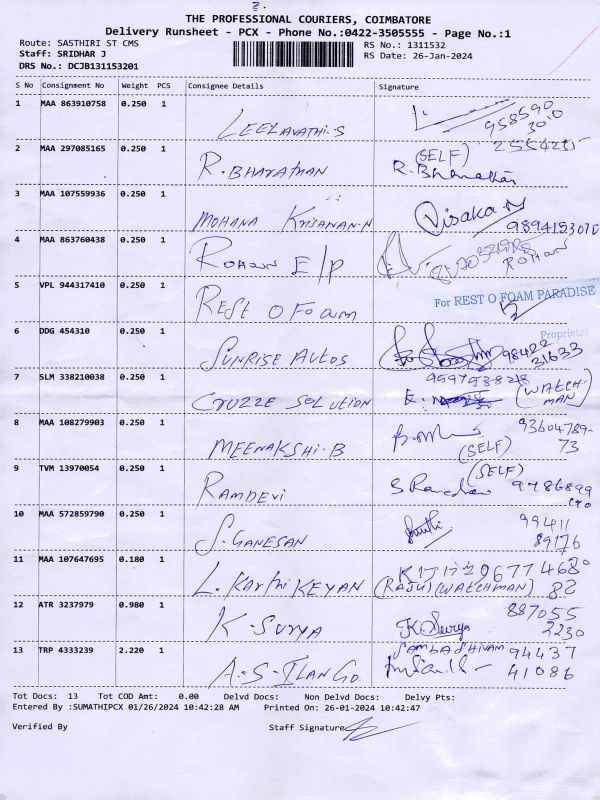 2.
THE PROFESSIONAL COURIERS, COIMBATORE
Delivery Runsheet - PCX - Phone No.:0422-3505555 - Page No.:1
Route: SASTHIRI ST CMS RS No.: 1311532
Staff: SRIDHAR J RS Date: 26-Jan-2024
DRS No.: DCJB131153201
S No Consignment No Weight PCS Consignee Details Signature
1 MAA 863910758 0.250 1 LEELAVATHI-S 958590
30.0
2 MAA 297085165 0.250 1 R. BHARATHAN (SELF)
3 MAA 107559936 0.250 1 MOHANA KRISHNAN-N Visaka
4 MAA 863760438 0.250 1 ROHAN E/P ROHAN
5 VPL 944317410 0.250 1 REST O FOAM For REST O FOAM PARADISE
Proprietor
6 DDG 454310 0.250 1 SUNRISE AUTOS 98422
31633
7 SLM 338210038 0.250 1 CRUZZE SOLUTION (WATCH-
MAN)
8 MAA 108279903 0.250 1 MEENAKSHI-B 93604789-
73
(SELF)
9 TVM 13970054 0.250 1 RAMDEVI (SELF)
10 MAA 572859790 0.250 1 S. GANESAN 99411
89176
11 MAA 107647695 0.180 1 L. KARTHIKEYAN 9677468
(RAJU) (WATCHMAN) 82
12 ATR 3237979 0.980 1 K-SURYA 887055
K. Surya 2230
13 TRP 4333239 2.220 1 A-S-ILANGO. SAMBASHIVAM 94437
41086
Tot Docs: 13 Tot COD Amt: 0.00 Delvd Docs: Non Delvd Docs: Delvy Pts:
Entered By :SUMATHIPCX 01/26/2024 10:42:28 AM Printed On: 26-01-2024 10:42:47
Verified By Staff Signature